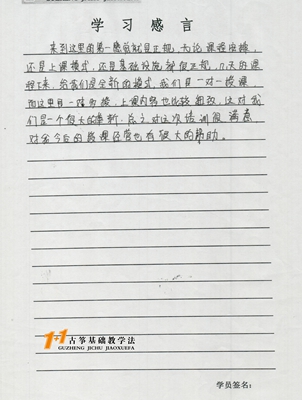 学习感言
来到这里的第一感觉就是正规，无论课程安排，
还是上课模式，还是基础设施都很正规，几天的课
程下来，给我们是全新的模式，我们是一对一授课，
而这里是一对多授，上课内容也比较细致，这对我
们是一个很大的革新，总之对这次培训很满意，
对我今后的授课经营也有很大的帮助。
1+1古筝基础教学法
GUZHENG JICHU JIAOXUEFA
学员签名: